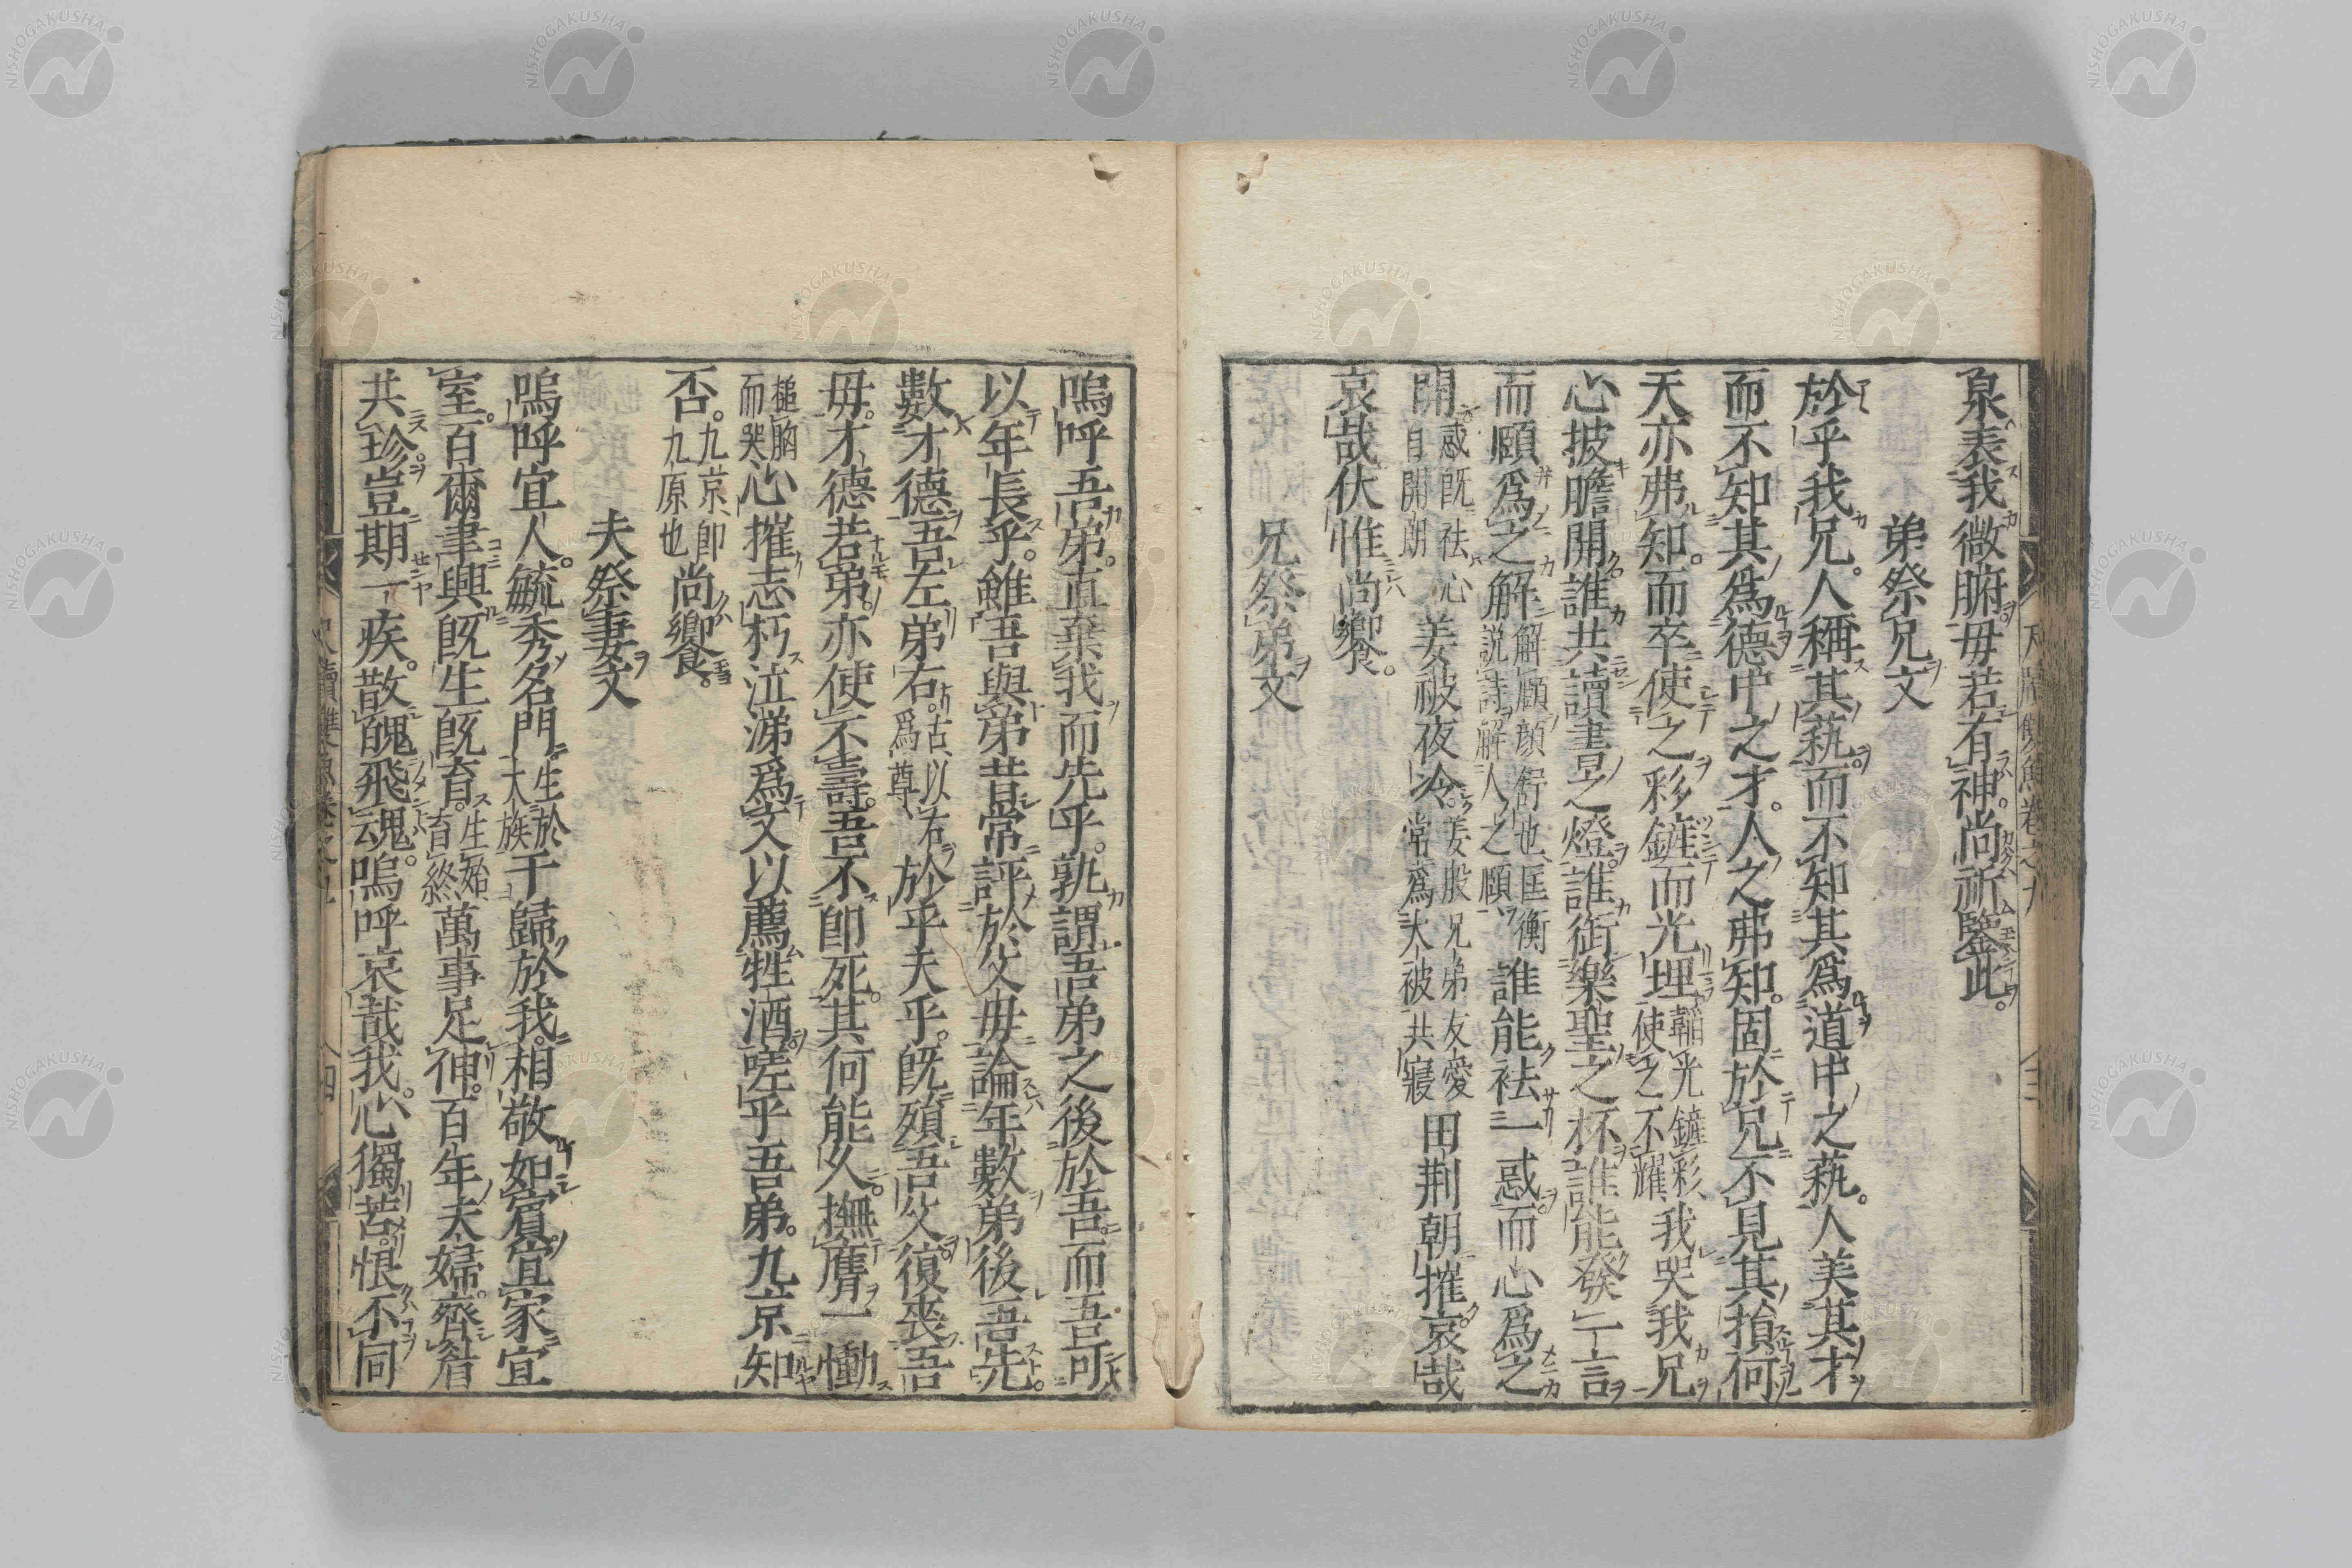 泉。表我微腑。毋若有神。尚祈鑒此。
弟祭兄文
於乎我兄。人稱其藝。而不知其爲道中之藝。人美其才
而不知其爲德中之才。人之弗知。固於兄不見其損。何
天亦弗知。而卒使之彩鏟而光埋韜光鏟彩、使之不耀、我哭我兄
心披膽開。誰共讀書之燈。誰銜樂聖之杯。誰能發一言
而頤爲之解解頤、顏舒也、匡衡說詩、解人之頤、誰能袪一惑。而心爲之
開惑旣袪、心自開朗、姜被夜冷。姜肱兄弟友愛常爲大被共寢田荆朝摧。哀哉
哀哉。伏惟尚饗。
兄祭弟文
嗚呼吾弟。直棄我而先乎。孰謂吾弟之後於吾。而吾可
以年長乎。雖吾與弟。昔常評於父母。論年數弟後吾先。
數才德。吾左弟右。古、以右爲尊、於乎夫乎。旣殞吾父。復喪吾
母。才德若弟。亦使不壽。吾不卽死。其何能久。撫膺一慟
搥胸而哭心摧志朽。泣涕爲文。以薦牲酒。嗟乎吾弟。九京知
否。九京、卽九原也尚饗。
夫祭妻文
嗚呼宜人。毓秀名門生於大族于歸於我。相敬如賓。宜家宜
室。百爾聿興。旣生旣育。生、始、育、終、萬事足神。百年夫婦。齊眉
共珍。豈期一疾。散醜飛魂。嗚呼哀哉。我心獨苦。恨不同